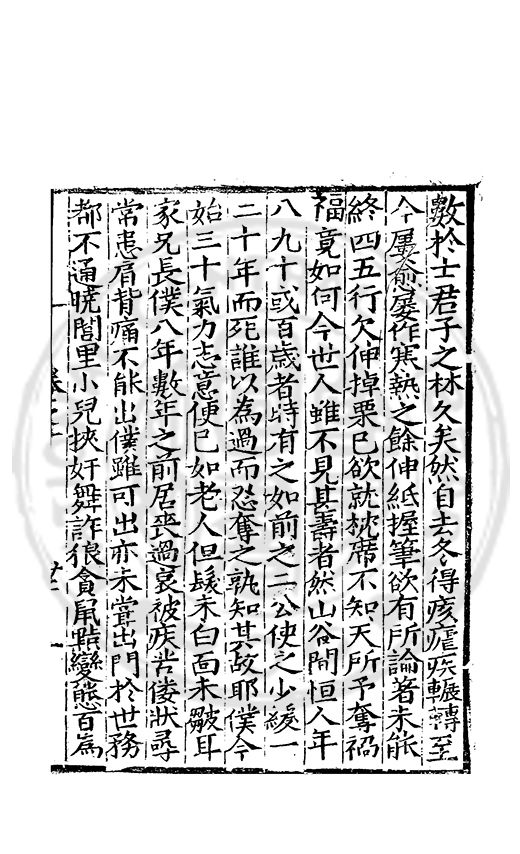 數於士君子之林久矣然自去冬得痎瘧疾輾轉至
今屢愈屢作寒熱之餘伸紙握筆欲有所論著未能
終四五行欠伸掉栗已欲就枕蓆不知天所予奪禍
福竟如何今世人雖不見甚壽者然山谷間恒人年
八九十或百歲者時有之如前之二公使之少緩一
二十年而死誰以為過而忍奪之孰知其故耶僕今
始三十氣力志意便已如老人但髮未白面未皺耳
家兄長僕八年數年之前居喪過哀被疾苦僂狀尋
常患肩背痛不能出僕雖可出亦未嘗出門於世務
都不通曉閭里小兒挾奸舞詐狼貪鼠黠變態百為